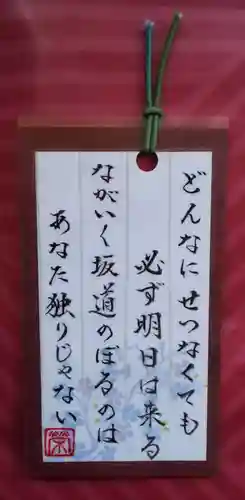 どんなに せつなくても
必ず明日は来る
ながいく坂道のぼるのは
あなた独りじゃない